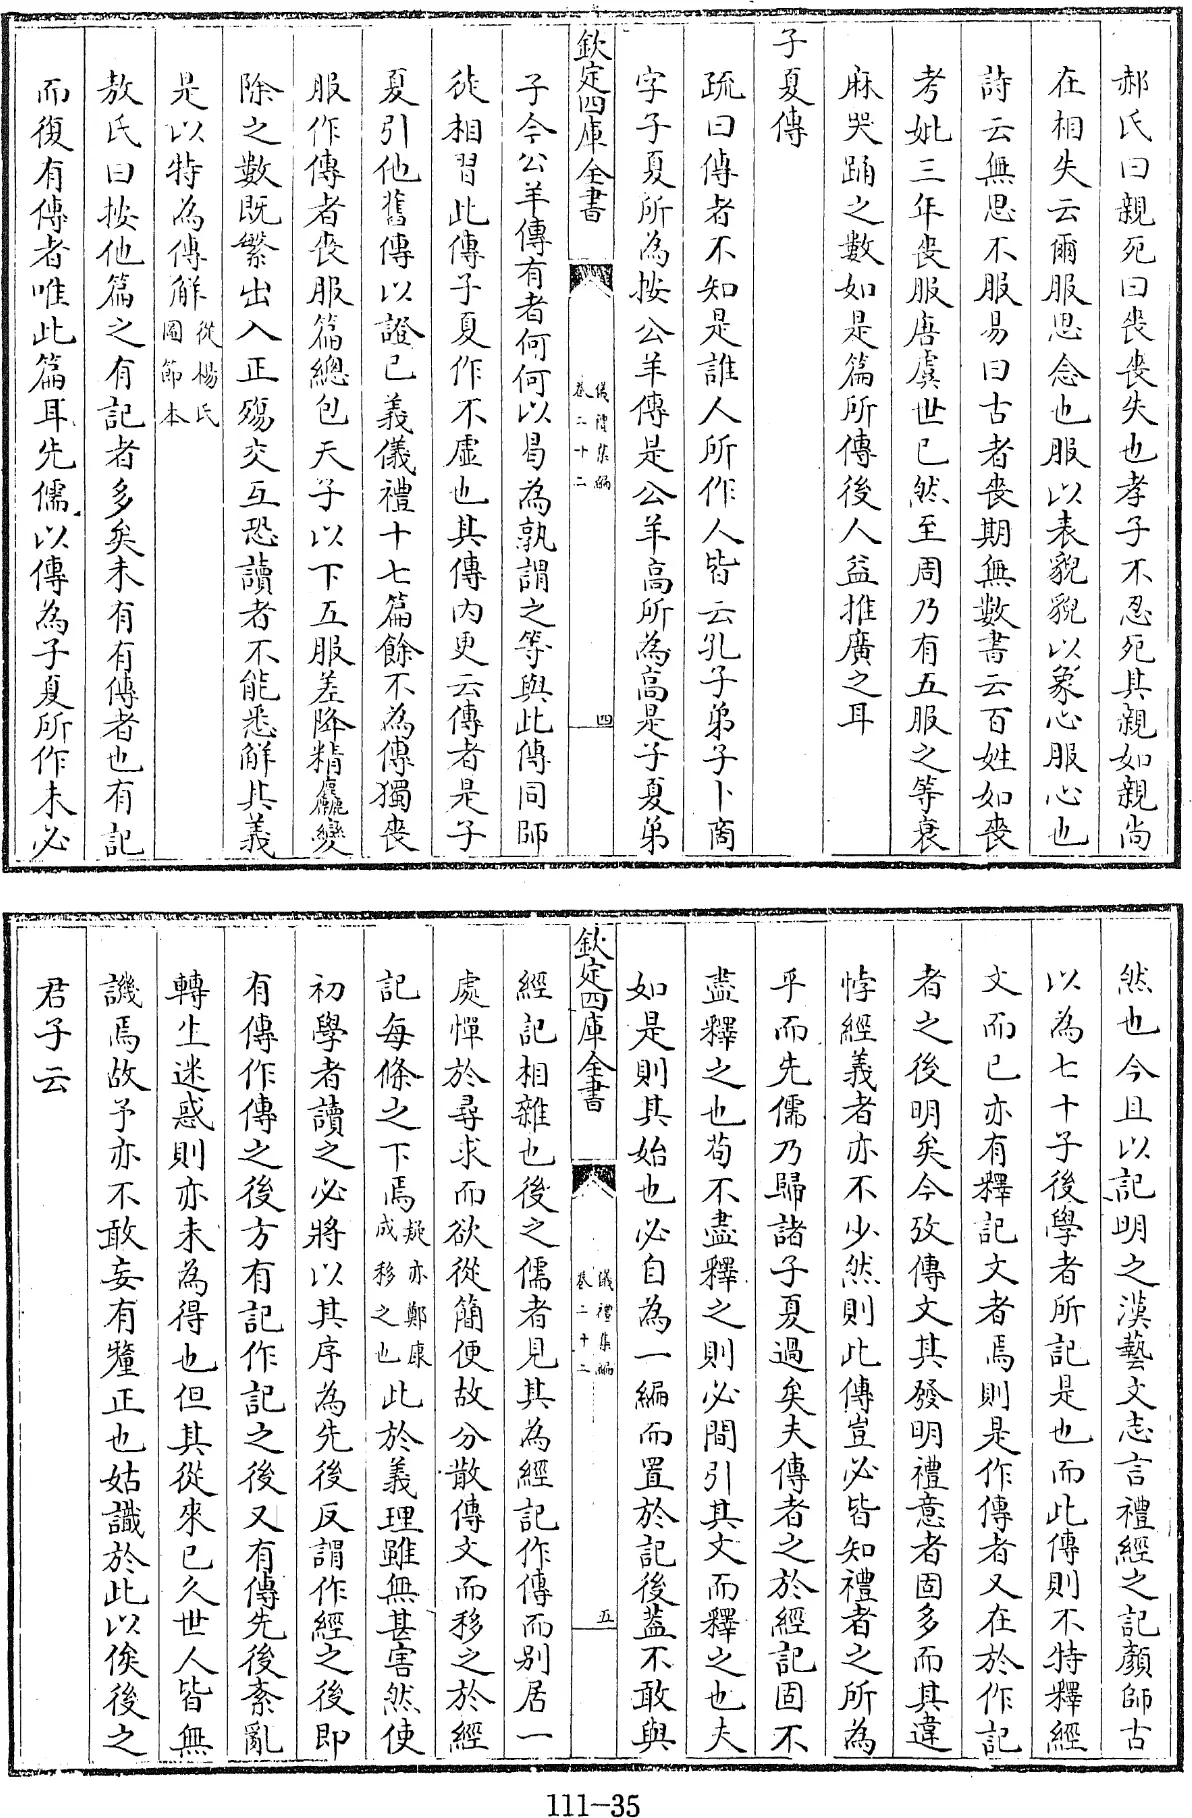 郝氏曰親死曰喪喪失也孝子不忍死其親如親尚
在相失云爾服思念也服以表貌貌以象心服心也
詩云無思不服易曰古者喪期無數書云百姓如喪
考妣三年喪服唐虞世已然至周乃有五服之等衰
麻哭踊之數如是篇所傳後人益推廣之耳
子夏傳
疏曰傳者不知是誰人所作人皆云孔子弟子卜商
字子夏所為按公羊傳是公羊高所為高是子夏弟
欽定四庫全書
儀禮集編
卷二十二
四
子今公羊傳有者何何以曷為孰謂之等與此傳同師
徒相習此傳子夏作不虛也其傳內更云傳者是子
夏引他舊傳以證已義儀禮十七篇餘不為傳獨喪
服作傳者喪服篇總包天子以下五服差降精麤變
除之數既繁出入正殤交互恐讀者不能悉解其義
是以特為傳解從楊氏
圖節本
敖氏曰按他篇之有記者多矣未有有傳者也有記
而復有傳者唯此篇耳先儒以傳為子夏所作未必
然也今且以記明之漢藝文志言禮經之記顏師古
以為七十子後學者所記是也而此傳則不特釋經
文而已亦有釋記文者焉則是作傳者又在於作記
者之後明矣今攷傳文其發明禮意者固多而其違
悖經義者亦不少然則此傳豈必皆知禮者之所為
乎而先儒乃歸諸子夏過矣夫傳者之於經記固不
盡釋之也茍不盡釋之則必間引其文而釋之也夫
如是則其始也必自為一編而置於記後葢不敢與
欽定四庫全書
儀禮集編
卷二十二
五
經記相雜也後之儒者見其為經記作傳而别居一
處憚於尋求而欲從簡便故分散傳文而移之於經
記每條之下焉疑亦鄭康
成移之也此於義理雖無甚害然使
初學者讀之必將以其序為先後反謂作經之後即
有傳作傳之後方有記作記之後又有傳先後紊亂
轉生迷惑則亦未為得也但其從來已久世人皆無
譏焉故予亦不敢妄有釐正也姑識於此以俟後之
君子云
111-35